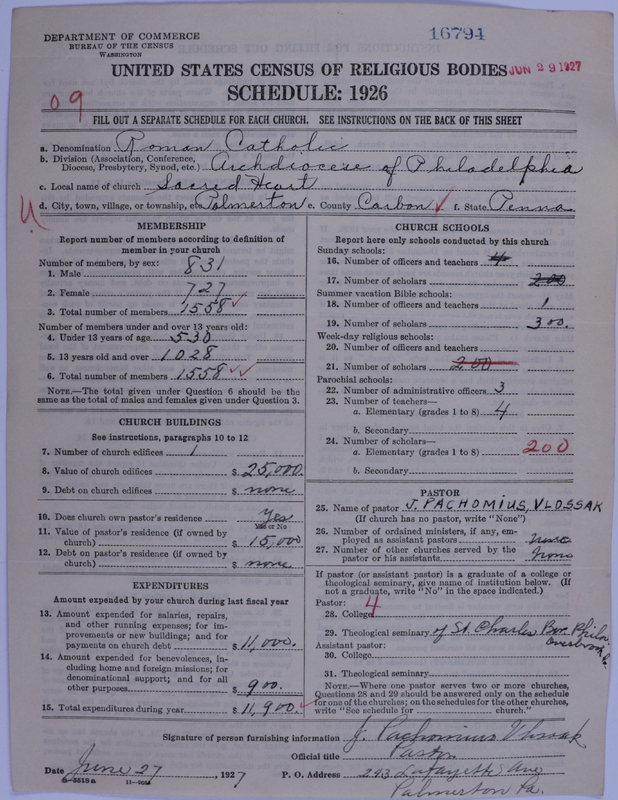 DEPARTMENT OF COMMERCE
BUREAU OF THE CENSUS
WASHINGTON
16794
UNITED STATES CENSUS OF RELIGIOUS BODIES JUN 29 1927
SCHEDULE: 1926
09
FILL OUT A SEPARATE SCHEDULE FOR EACH CHURCH. SEE INSTRUCTIONS ON THE BACK OF THIS SHEET
a. Denomination Roman Catholic
b. Division (Association, Conference, Diocese, Presbytery, Synod, etc.) Archdiocese of Philadelphia
c. Local name of church Sacred Heart
d. City, town, village, or township, etc. Palmerton e. County Carbon f. State Penna.
MEMBERSHIP
Report number of members according to definition of
member in your church
Number of members, by sex:
1. Male 831
2. Female 727
3. Total number of members 1558
Number of members under and over 13 years old:
4. Under 13 years of age 530
5. 13 years old and over 1028
6. Total number of members 1558
NOTE.—The total given under Question 6 should be
same as the total of males and females given under Question 3.
CHURCH BUILDINGS
See instructions, paragraphs 10 to 12
7. Number of church edifices 1
8. Value of church edifices $ 25,000.
9. Debt on church edifices $ none
10. Does church own pastor's residence Yes
Yes or No
11. Value of pastor's residence (if owned by
church) $ 15,000
12. Debt on pastor's residence (if owned by
church) $ none
EXPENDITURES
Amount expended by your church during last fiscal year
13. Amount expended for salaries, repairs,
and other running expenses; for im-
provements or new buildings; and for
payments on church debt $ 11,000.
14. Amount expended for benevolences, in-
cluding home and foreign missions; for
denominational support; and for all
other purposes $ 900.
15. Total expenditures during year $ 11,900.
CHURCH SCHOOLS
Report here only schools conducted by this church
Sunday schools:
16. Number of officers and teachers 4
17. Number of scholars 200
Summer vacation Bible schools:
18. Number of officers and teachers 1
19. Number of scholars 300.
Week-day religious schools:
20. Number of officers and teachers
21. Number of scholars 200
Parochial schools:
22. Number of administrative officers 3
23. Number of teachers—
a. Elementary (grades 1 to 8) 4
b. Secondary
24. Number of scholars—
a. Elementary (grades 1 to 8) 200
b. Secondary
PASTOR
25. Name of pastor J. PACHOMIUS, VLOSSAK
(If church has no pastor, write "None")
26. Number of ordained ministers, if any, em-
ployed as assistant pastors None
27. Number of other churches served by the
pastor or his assistants None
If pastor (or assistant pastor) is a graduate of a college or
theological seminary, give name of institution below. (If
not a graduate, write "No" in the space indicated.)
Pastor:
28. College 4
29. Theological seminary of St. Charles Bor. Phila
Overbrook
Assistant pastor:
30. College
31. Theological seminary
NOTE.—Where one pastor serves two or more churches,
Questions 28 and 29 should be answered only on the schedule
for one of the churches; on the schedules for the other churches,
write "See schedule for church."
Signature of person furnishing information J. Pachomius Vlossak
Official title Pastor
Date June 27 1927 P. O. Address 243 Lafayette Ave
Palmerton Pa.